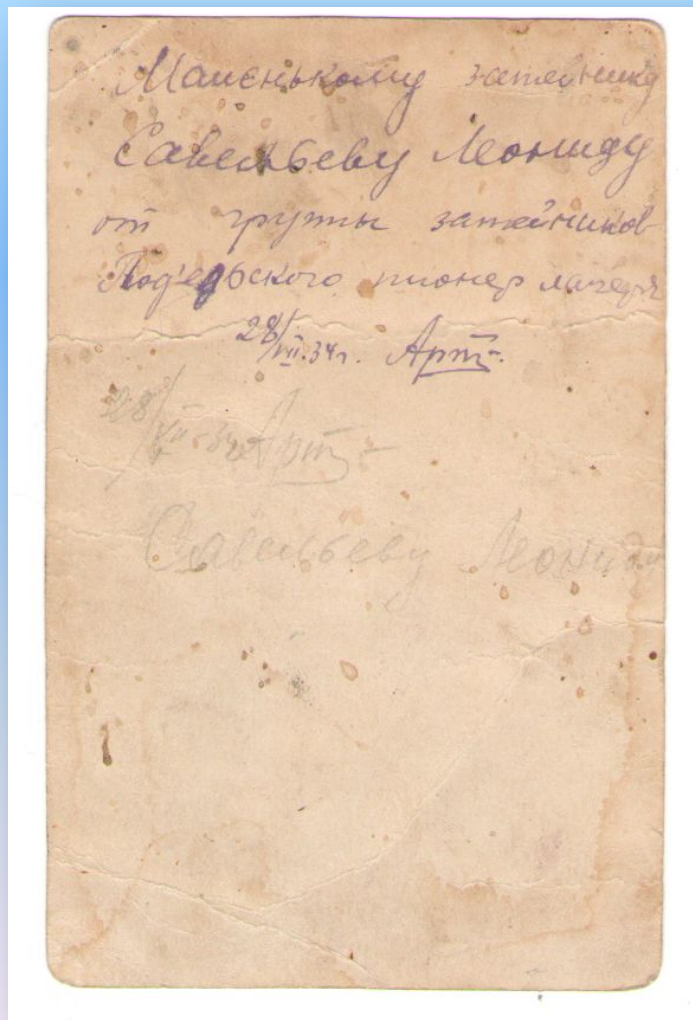 Маленькому затейнику
Савельеву Леониду
от группы затейников
Под'ельского пионер лагеря
28/VII.34г. Арт-
28/VII-34 Арт-
Савельеву Леониду